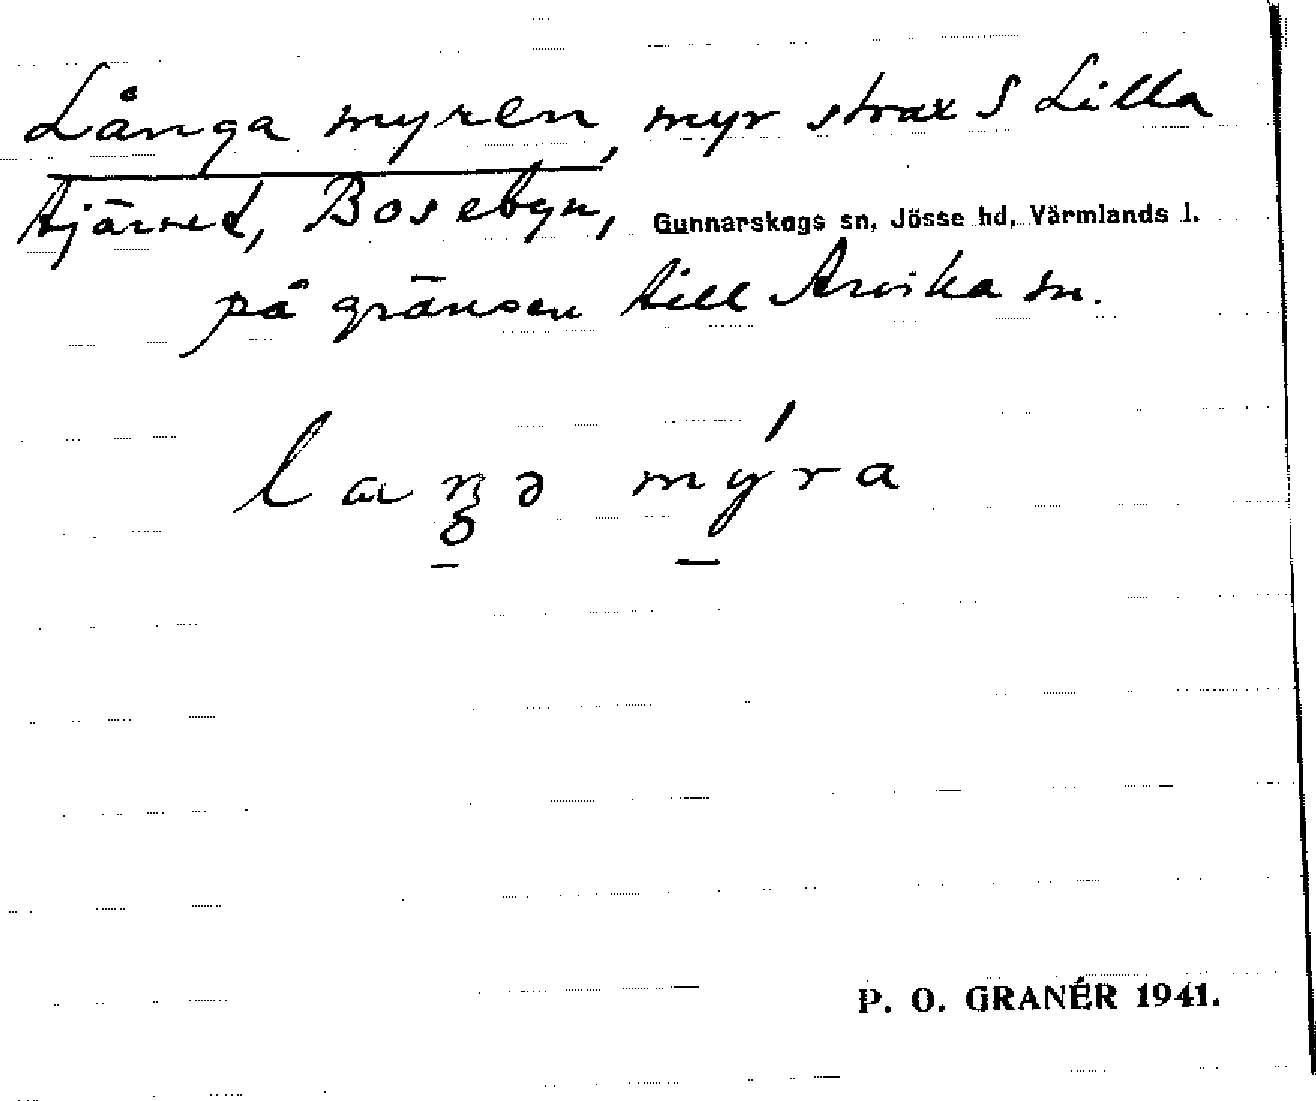 Långa myren, myr strax S Lilla
tjärnet, Bosebyn, Gunnarskogs sn, Jösse hd, Värmlands l.
på gränsen till Arvika sn.
mýra
P. O. GRANÉR 1941.